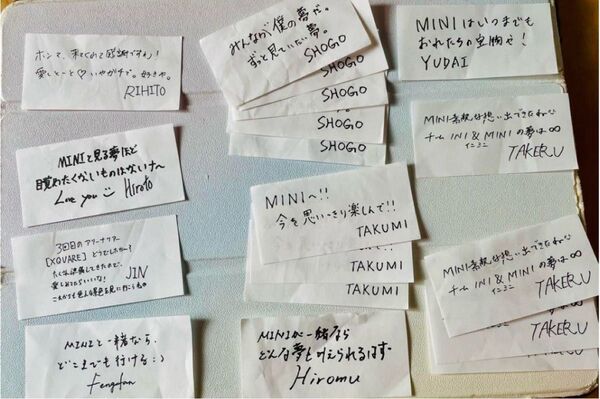 ホンマ、来てくれて感謝ですわ!
愛しとーと♡いやガチで。好きや。
RIHITO
みんなが僕の夢だ。
ずっと見ていたい夢。
SHOGO
SHOGO
SHOGO
SHOGO
SHOGO
MINIはいつまでも
おれたちの宝物や!
YUDAI
MINIと見る夢ほど
覚めたくないものはないナ〜
Love you Hiroto
MINI最高な想い出できたねーな
チーム INI & MINIの夢は∞
イニミニ
TAKERU
MINIへ!!
今を思いっきり楽しんで!!
TAKUMI
TAKUMI
TAKUMI
TAKUMI
3回目のアリーナツアー
[XQUARE] どうでしたかー?
たくさん準備してきたので、
楽しめてたらいいな!
これからも色んな景色を見に行こうね
JIN
チーム INI & MINIの夢は∞
イニミニ
TAKERU
TAKERU
TAKERU
MINIと一緒なら、
どこまでも行ける:)
Fengfan
MINIが一緒なら
どんな夢も叶えられるはず
Hiromu